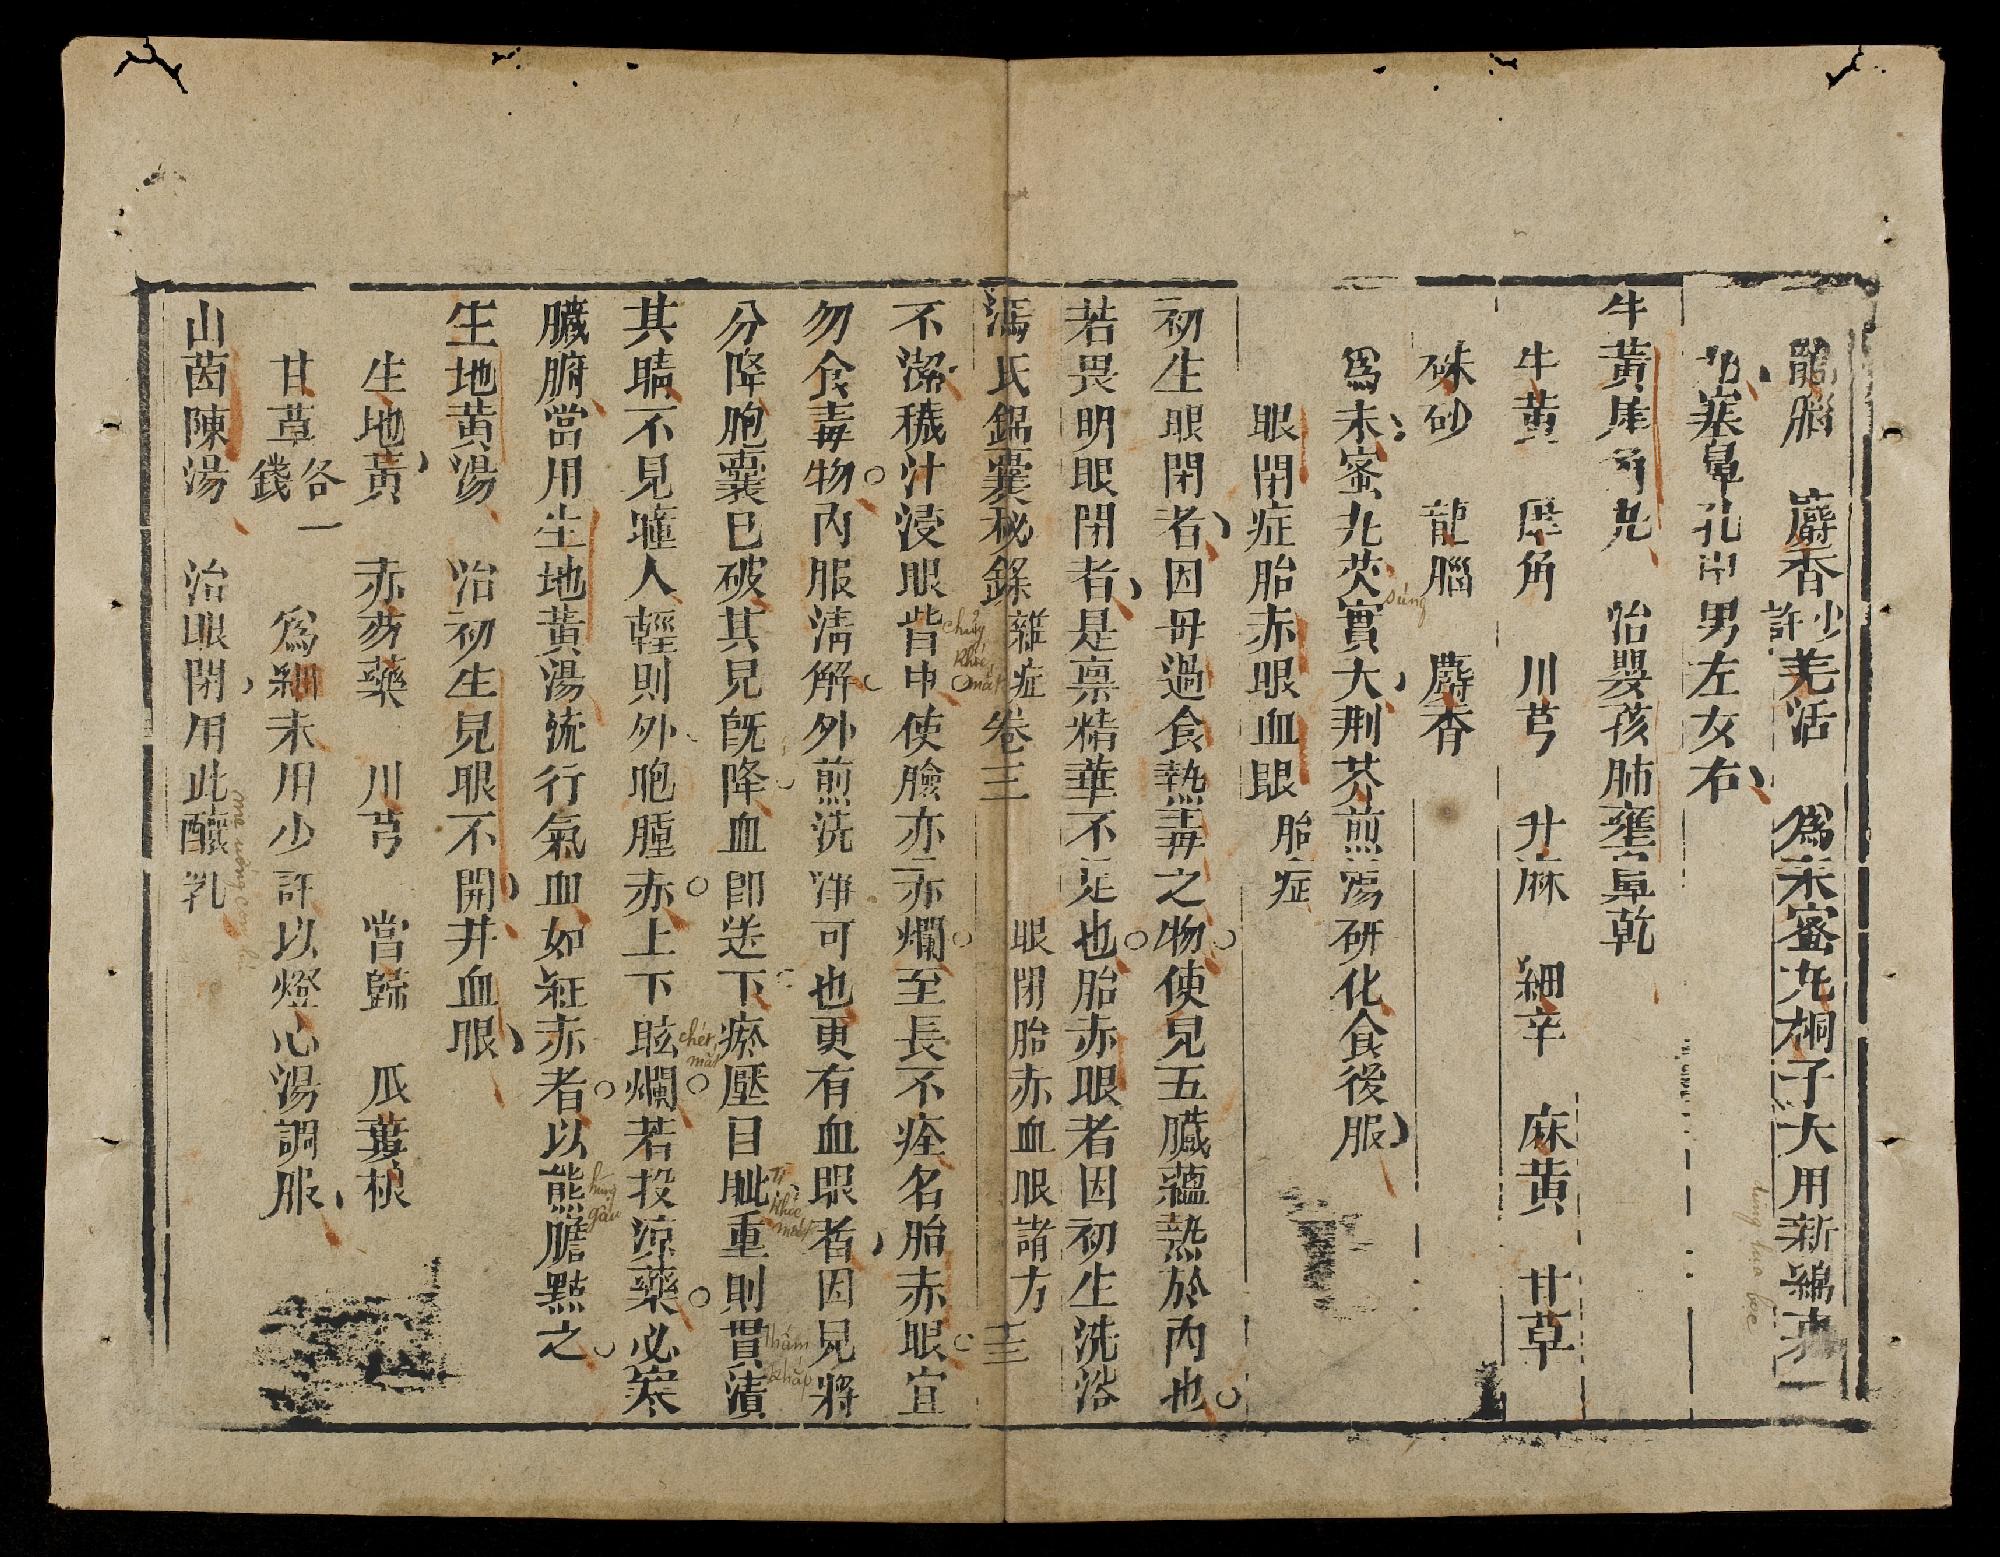 龍腦　麝香少許　羌活　為末蜜丸桐子大用新綿裹一
丸塞鼻孔中男左女右
牛黃犀角丸　治嬰孩肺壅鼻乾
牛黃　犀角　川芎　升麻　細辛　麻黃　甘草
硃砂　龍腦　麝香
為末蜜丸芡實大荆芥煎湯研化食後服
súng
眼閉症胎赤眼血眼　胎症
初生眼閉者因母過食熱毒之物使兒五臟蘊熱於內也
若畏明眼閉者是禀精華不足也胎赤眼者因初生洗浴
馮氏錦囊秘錄　雜症　卷三　眼閉胎赤血眼諸方　三
不潔穢汁浸眼眥中使臉亦赤爛至長不痊名胎赤眼宜
chảy khóe mắt
勿食毒物內服清解外煎洗淨可也更有血眼者因兒將
分降胞囊已破其兒既降血即送下瘀壓目眦重則貫漬
khóe mắt
thấm khắp
其睛不見瞳人輕則外胞腫赤上下眩爛若投涼藥必寒
chét mắt
臟腑當用生地黃湯流行氣血如紅赤者以熊膽點之
gấu
生地黃湯　治初生見眼不開并血眼
生地黃　赤芍藥　川芎　當歸　瓜蔞根
甘草各一錢　為細末用少許以燈心湯調服
山茵陳湯　治眼閉用此釀乳
mẹ uống con bú